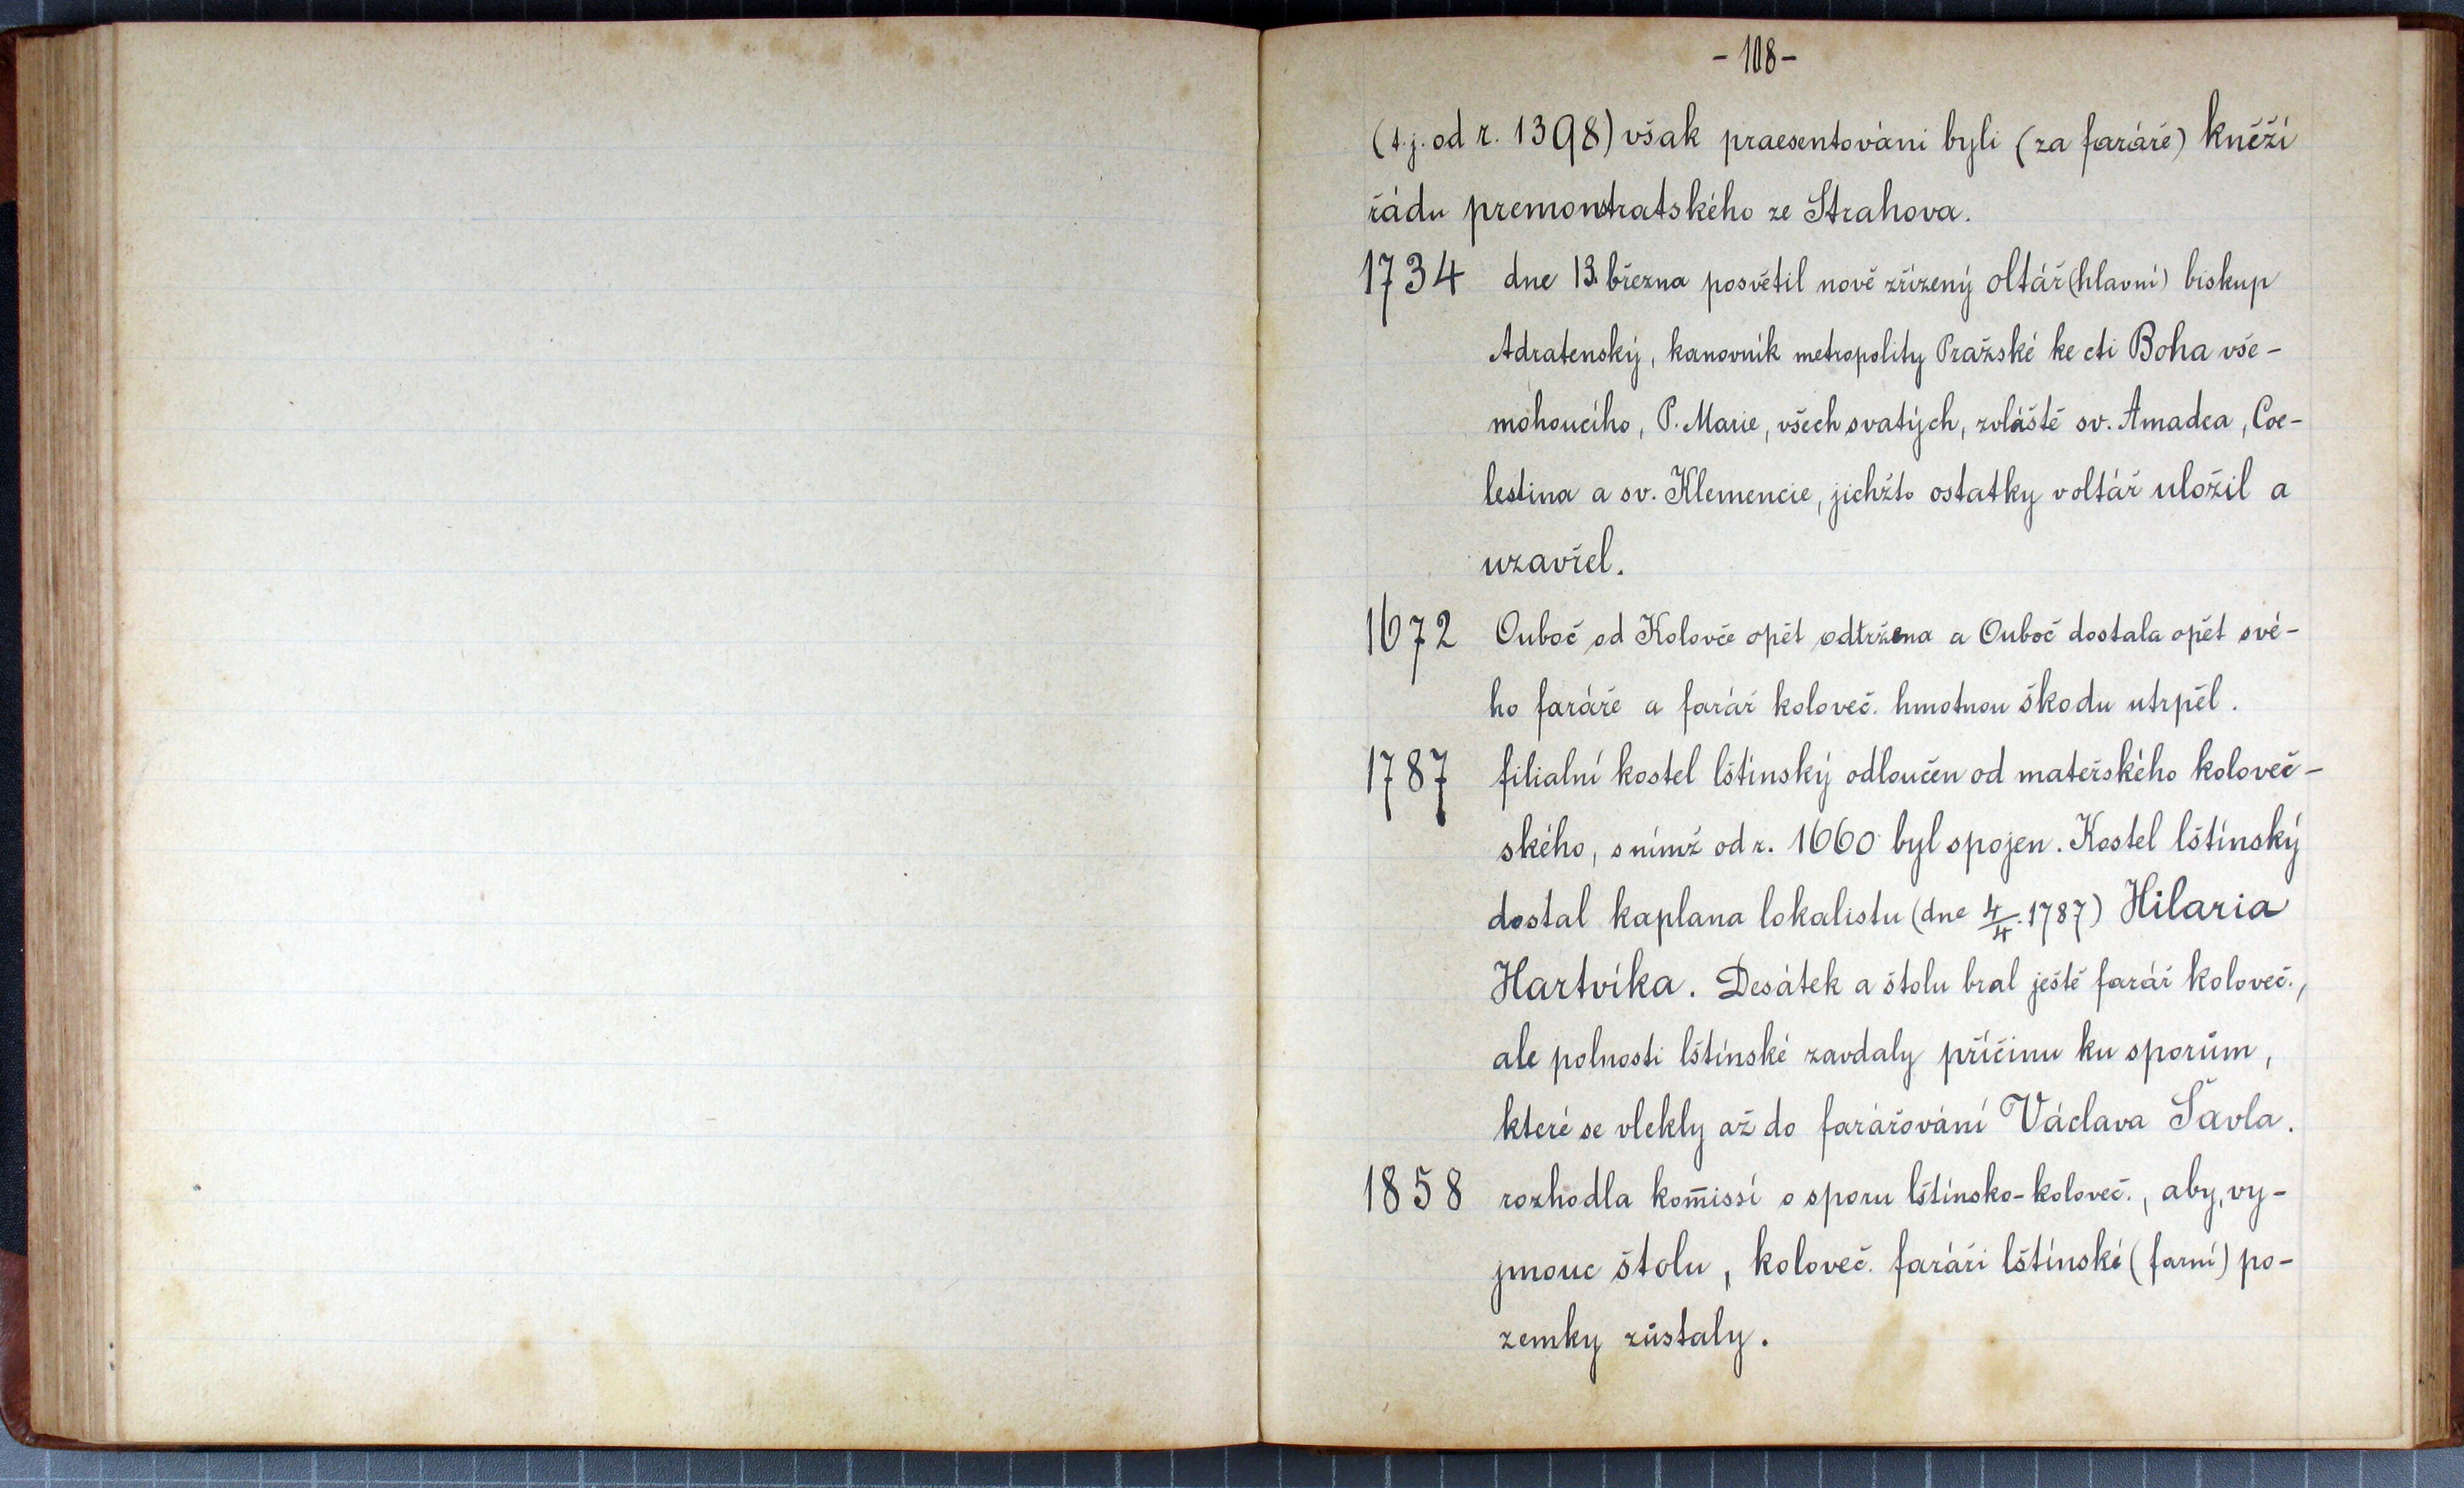 - 108 -
(t.j. od r. 1398) však praesentováni byli (za faráře) kněží
řádu premonstratského ze Strahova.
1734 dne 13. března posvětil nově zřízený oltář (hlavní) biskup
Adratenský, kanovník metropolity Pražské ke cti Boha vše-
mohoucího, P. Marie, všech svatých, zvláště sv. Amadea, Coe-
lestina a sv. Klemencie, jichžto ostatky v oltář uložil a
uzavřel.
1672 Ouboč od Kolovče opět odtržena a Ouboč dostala opět své-
ho faráře a farář koloveč. hmotnou škodu utrpěl.
1787 filialní kostel lštínský odloučen od mateřského koloveč-
ského, s nímž od r. 1660 byl spojen. Kostel lštínský
dostal kaplana lokalistu (dne 4/4. 1787) Hilaria
Hartvíka. Desátek a štolu bral ještě farář koloveč.,
ale polnosti lštínské zavdaly příčinu ku sporům,
které se vlekly až do farářování Václava Šavla.
1858 rozhodla kom̄issí o sporu lštínsko-koloveč., aby, vy-
jmouc štolu, koloveč. faráři lštínské (farní) po-
zemky zůstaly.